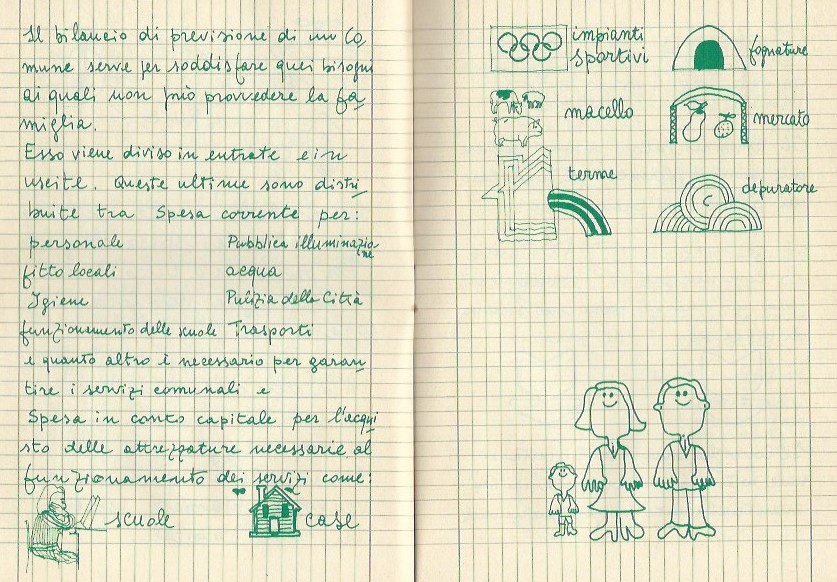 Il bilancio di previsione di un Co
mune serve per soddisfare quei bisogni
ai quali non può provvedere la fa
miglia.
Esso viene diviso in entrate e in
uscite. Queste ultime sono distri
buite tra Spesa corrente per:
personale Pubblica illuminazione
fitto locali acqua
Igiene Pulizia della Città
funzionamento delle scuole Trasporti
e quanto altro è necessario per garan
tire i servizi comunali e
Spesa in conto capitale per l'acqui
sto delle attrezzature necessarie al
funzionamento dei servizi come:
scuole case
impianti
sportivi fognature
macello mercato
terme depuratore